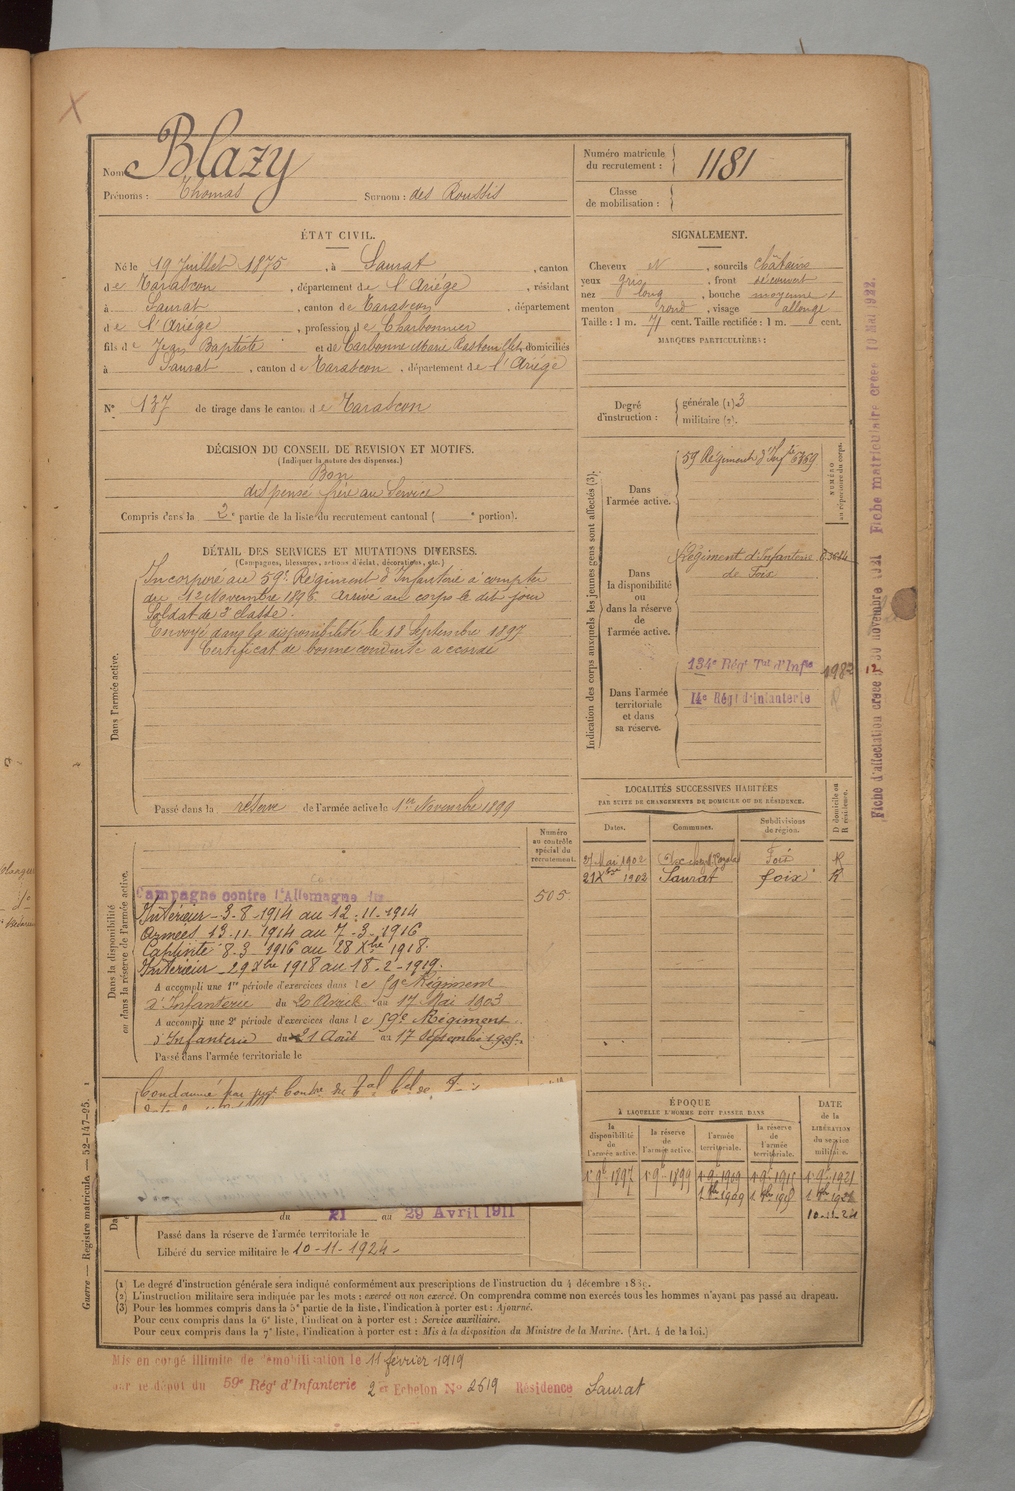 Nom Blazy
Prénoms : Thomas Surnom : des Roussis
Numéro matricule
du recrutement : 1181
Classe
de mobilisation :
ÉTAT CIVIL.
Né le 19 Juillet 1875, à Saurat, canton
de Tarascon, département de l'Ariége, résidant
à Saurat, canton de Tarascon, département
de l'Ariége, profession de Charbonnier
fils de Jean Baptiste et de Carbonne Marie domiciliés
à Saurat, canton de Tarascon, département de l'Ariége
N° 137 de tirage dans le canton de Tarascon
SIGNALEMENT.
Cheveux N, sourcils châtains
yeux gris, front découvert
nez long, bouche moyenne
menton rond, visage allongé
Taille : 1 m. 71 cent. Taille rectifiée : 1 m. cent.
MARQUES PARTICULIÈRES :
Degré
d'instruction :
générale (1) 3
militaire (2).
DÉCISION DU CONSEIL DE REVISION ET MOTIFS.
(Indiquer la nature des dispenses.)
Bon
dispensé frère au Service
Compris dans la 2e partie de la liste du recrutement cantonal ( e portion).
DÉTAIL DES SERVICES ET MUTATIONS DIVERSES.
(Campagnes, blessures, actions d'éclat, décorations, etc.)
Dans l'armée active.
Incorporé au 59e Régiment d'Infanterie à compter
du 12 Novembre 1896. Arrivé au corps le dit jour
Soldat de 2e classe.
Envoyé dans la disponibilité le 18 Septembre 1897
Certificat de bonne conduite accordé
Passé dans la réserve de l'armée active le 1er Novembre 1899
Indication des corps auxquels les jeunes gens sont affectés (3).
NUMÉRO
au répertoire du corps.
Dans
l'armée active.
59 Régiment d'Inf
Dans
la disponibilité
ou
dans la réserve
de
l'armée active.
Régiment d'Infanterie
de Foix
Dans l'armée
territoriale
et dans
sa réserve.
134e Régt Tal d'Infie
14e Régt d'Infanterie
Fiche d'affectation créée 30 novembre 1921 Fiche matriculaire créée 10 Mai 1922.
LOCALITÉS SUCCESSIVES HABITÉES
PAR SUITE DE CHANGEMENTS DE DOMICILE OU DE RÉSIDENCE.
Dates. Communes. Subdivisions
de région. D domicile ou
R résidence.
Mai 1902 Foix R
21 Xbre 1902 Saurat Foix R
Dans la disponibilité
ou dans la réserve de l'armée active.
Numéro
au contrôle
spécial du
recrutement.
505
Campagne contre l'Allemagne
Intérieur - 3-8-1914 au 12-11-1914
Armées 13-11-1914 au 7-3-1916
Captivité 8-3-1916 au 28 Xbre 1918
Intérieur - 29 Xbre 1918 au 18-2-1919.
A accompli une 1re période d'exercices dans le 59e Régiment
d'Infanterie du 20 Avril au 17 Mai 1903
A accompli une 2e période d'exercices dans le 59e Régiment
d'Infanterie du 21 Août au 17 Septembre
Passé dans l'armée territoriale le
Condamné par
du 21 au 29 Avril 1911
Passé dans la réserve de l'armée territoriale le
Libéré du service militaire le 10-11-1924
ÉPOQUE
À LAQUELLE L'HOMME DOIT PASSER DANS
DATE
de la
LIBÉRATION
du service
militaire.
la
disponibilité
de
l'armée active.
la réserve
de
l'armée active.
l'armée
territoriale.
la réserve
de
l'armée
territoriale.
1 9b 1897 1 9b 1899 1 9b 1909 1 9b 1915 1 9b 1921
10-11-24
Guerre — Registre matricule. — 52-147-95.
(1) Le degré d'instruction générale sera indiqué conformément aux prescriptions de l'instruction du 4 décembre 1889.
(2) L'instruction militaire sera indiquée par les mots : exercé ou non exercé. On comprendra comme non exercés tous les hommes n'ayant pas passé au drapeau.
(3) Pour les hommes compris dans la 5e partie de la liste, l'indication à porter est : Ajourné.
Pour ceux compris dans la 6e liste, l'indication à porter est : Service auxiliaire.
Pour ceux compris dans la 7e liste, l'indication à porter est : Mis à la disposition du Ministre de la Marine. (Art. 4 de la loi.)
Mis en congé illimité de démobilisation le 11 février 1919
par le dépôt du 59e Régt d'Infanterie 2e Echelon No 2619 Résidence Saurat